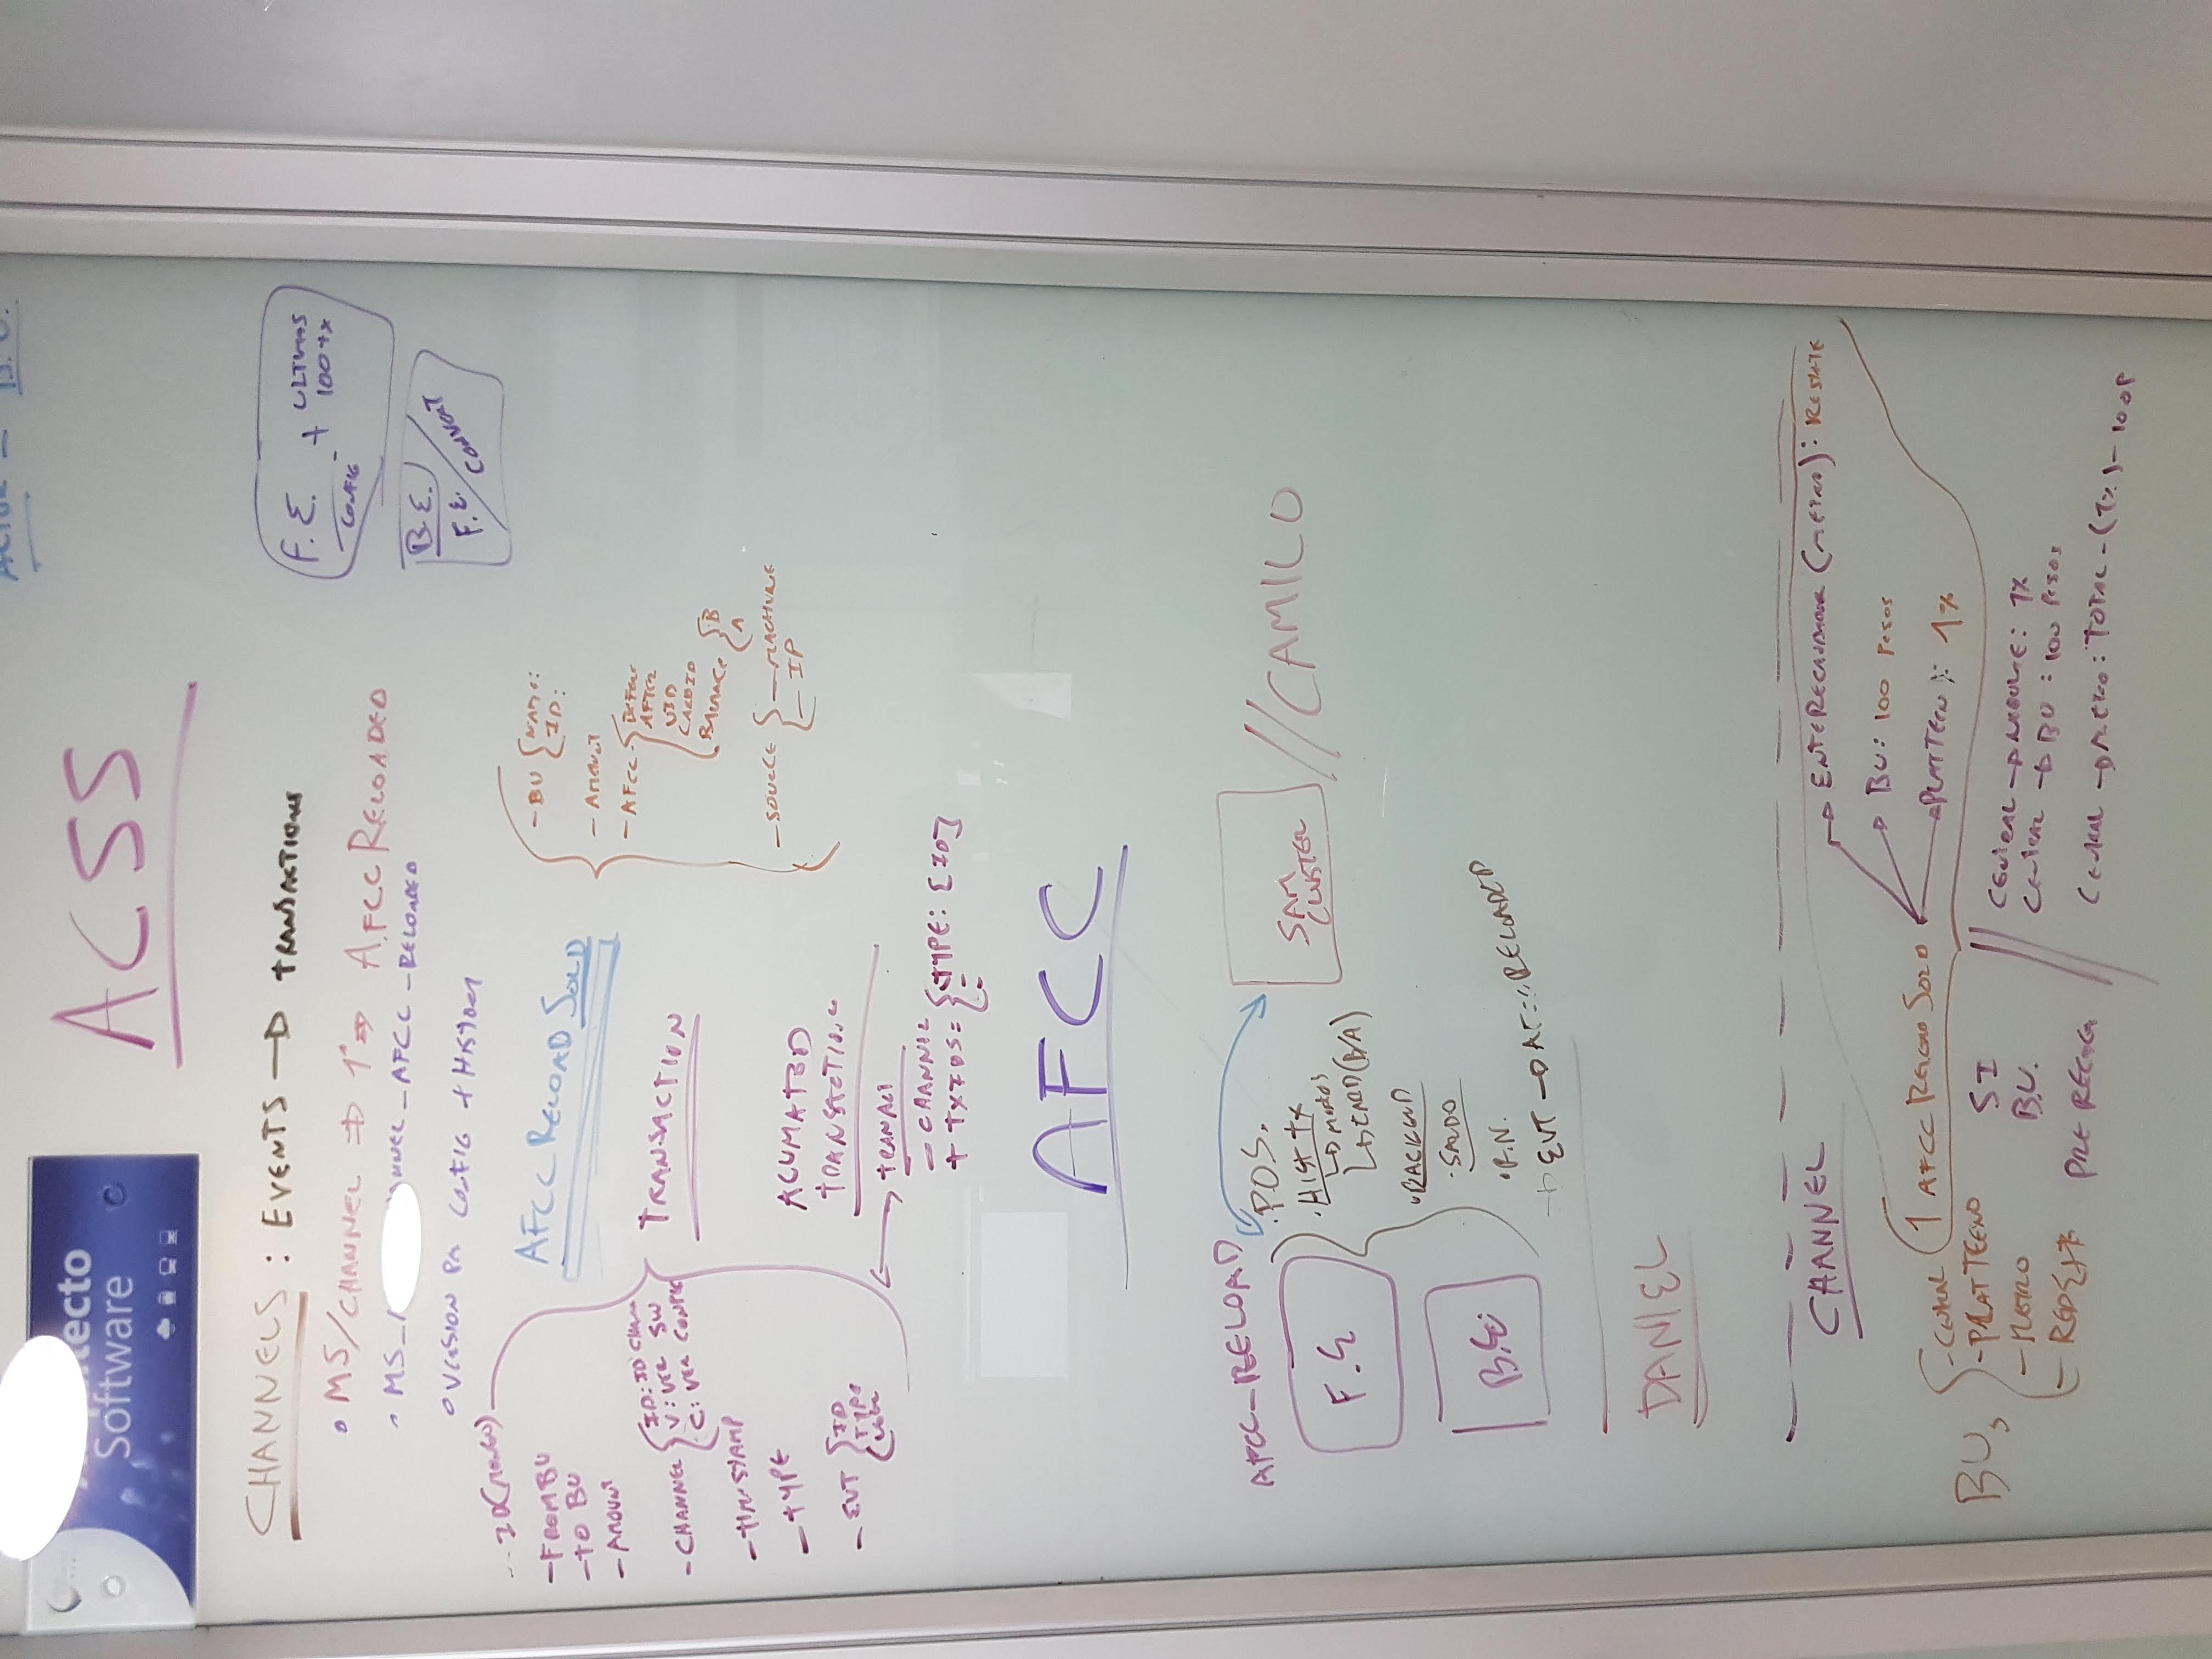 ACTOR - B.O.
Software
ACSS
CHANNELS : EVENTS → TRANSACTIONS
• MS/CHANNEL ⇒ 1° ⇒ AFCC RELOADED
_AFCC_RELOADED
VERSION CONFIG + HISTORY
F.E. + ULTIMAS
CONFIG 100 tx
B.E.
F.E. / CONVERT
-- ID (MONGO)
- FROM BU
- TO BU
- AMOUNT
- CHANNEL { ID: ID CHANN
V: VER SW
C: VER CONFIG
- TIMESTAMP
- TYPE
- EVT { ID
TYPE
AFCC RELOAD SOLD
TRANSACTION
ACUMATED
TRANSACTION
TRANACT
- CHANNEL
+ TXIDS = { TYPE: [ID]
- BU { NAME:
ID:
- AMOUNT
- AFCC - { BEFORE
AFTER
UID
CARDID
BALANCE { B
A
- SOURCE { - MACHINE
- IP
AFCC
AFCC_RELOAD
F.E
B.E.
• POS.
• HIST TX
↳ MONTOS
↳ CARD (B/A)
• BACKEND
• SALDO
• R.N.
→ EVT → AFCC RELOADED
SAM
CLUSTER
// CAMILO
DANIEL
CHANNEL
→ ENTE RECAUDADOR (METRO): RESTANTE
→ BU: 100 PESOS
→ PLAT TECN : 1%
1 AFCC RELOAD SOLD
BUs { - CENTRAL
- PLAT TECNO
- METRO
- RED EXT
SI
B.U.
PRE RECARGA
CENTRAL → : 1%
CENTRAL → BU : 100 PESOS
CENTRAL → METRO : TOTAL - (1%) - 100P